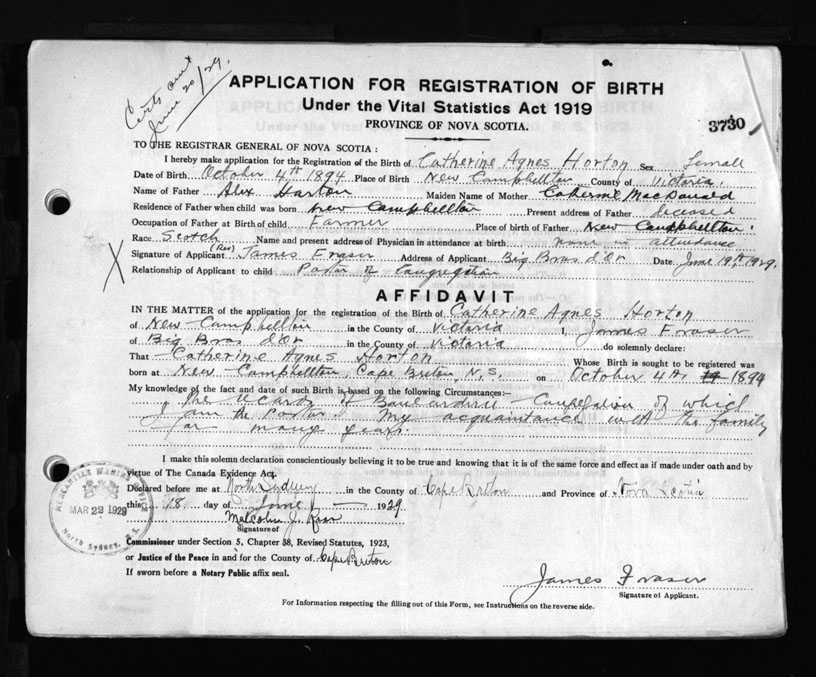 Certs out
June 20/29.
APPLICATION FOR REGISTRATION OF BIRTH
Under the Vital Statistics Act 1919
PROVINCE OF NOVA SCOTIA.
3730
TO THE REGISTRAR GENERAL OF NOVA SCOTIA:
I hereby make application for the Registration of the Birth of Catherine Agnes Horton Sex Femall
Date of Birth October 4th 1894 Place of Birth New Campbellton County of Victoria.
Name of Father Alex Horton Maiden Name of Mother Catherine MacDonald
Residence of Father when child was born New Campbellton Present address of Father deceased
Occupation of Father at Birth of child Farmer Place of birth of Father New Campbellton.
Race Scotch Name and present address of Physician in attendance at birth none in attendance
Signature of Applicant (Rev) James Fraser Address of Applicant Big Bras d'Or Date June 19th, 1929.
Relationship of Applicant to child Pastor of Congregation
X
AFFIDAVIT
IN THE MATTER of the application for the registration of the Birth of Catherine Agnes Horton
of New Campbellton in the County of Victoria I, James Fraser
of Big Bras d'Or in the County of Victoria do solemnly declare:
That Catherine Agnes Horton Whose Birth is sought to be registered was
born at New Campbellton, Cape Breton, N.S. on October 4th, 1894
My knowledge of the fact and date of such Birth is based on the following Circumstances:—
The records of Congregation of which
I am the Pastor. My acquaintance with the family
for many years.
I make this solemn declaration conscientiously believing it to be true and knowing that it is of the same force and effect as if made under oath and by
virtue of The Canada Evidence Act.
Declared before me at North Sydney in the County of Cape Breton and Province of Nova Scotia
this 18 day of June 1929
Malcolm J. Ross
Signature of
Commissioner under Section 5, Chapter 38, Revised Statutes, 1923,
or Justice of the Peace in and for the County of Cape Breton
If sworn before a Notary Public affix seal.
MERCANTILE MARINE OFFICE
MAR 22 1929
North Sydney, N.S.
James Fraser
Signature of Applicant.
For Information respecting the filling out of this Form, see Instructions on the reverse side.